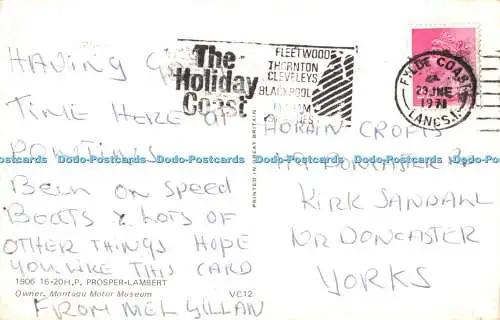 The
Holiday
Coast
FLEETWOOD
THORNTON
CLEVELEYS
BLACKPOOL
FYLDE COAST
23 JNE
1971
LANCS.
HAVING
TIME HERE AT
PONTINS
BEEN ON SPEED
BOATS & LOTS OF
OTHER THINGS HOPE
YOU LIKE THIS CARD
FROM MEL GILLAN
1906 16-20H.P. PROSPER-LAMBERT
Owner, Montagu Motor Museum VC12
PRINTED IN GREAT BRITAIN
ADRAIN CROFTS
DONCASTER
KIRK SANDALL
NR DONCASTER
YORKS
Dodo-Postcards Dodo-Postcards Dodo-Postcards Dodo-Postcards Dodo-Postcards Dodo-Postcards